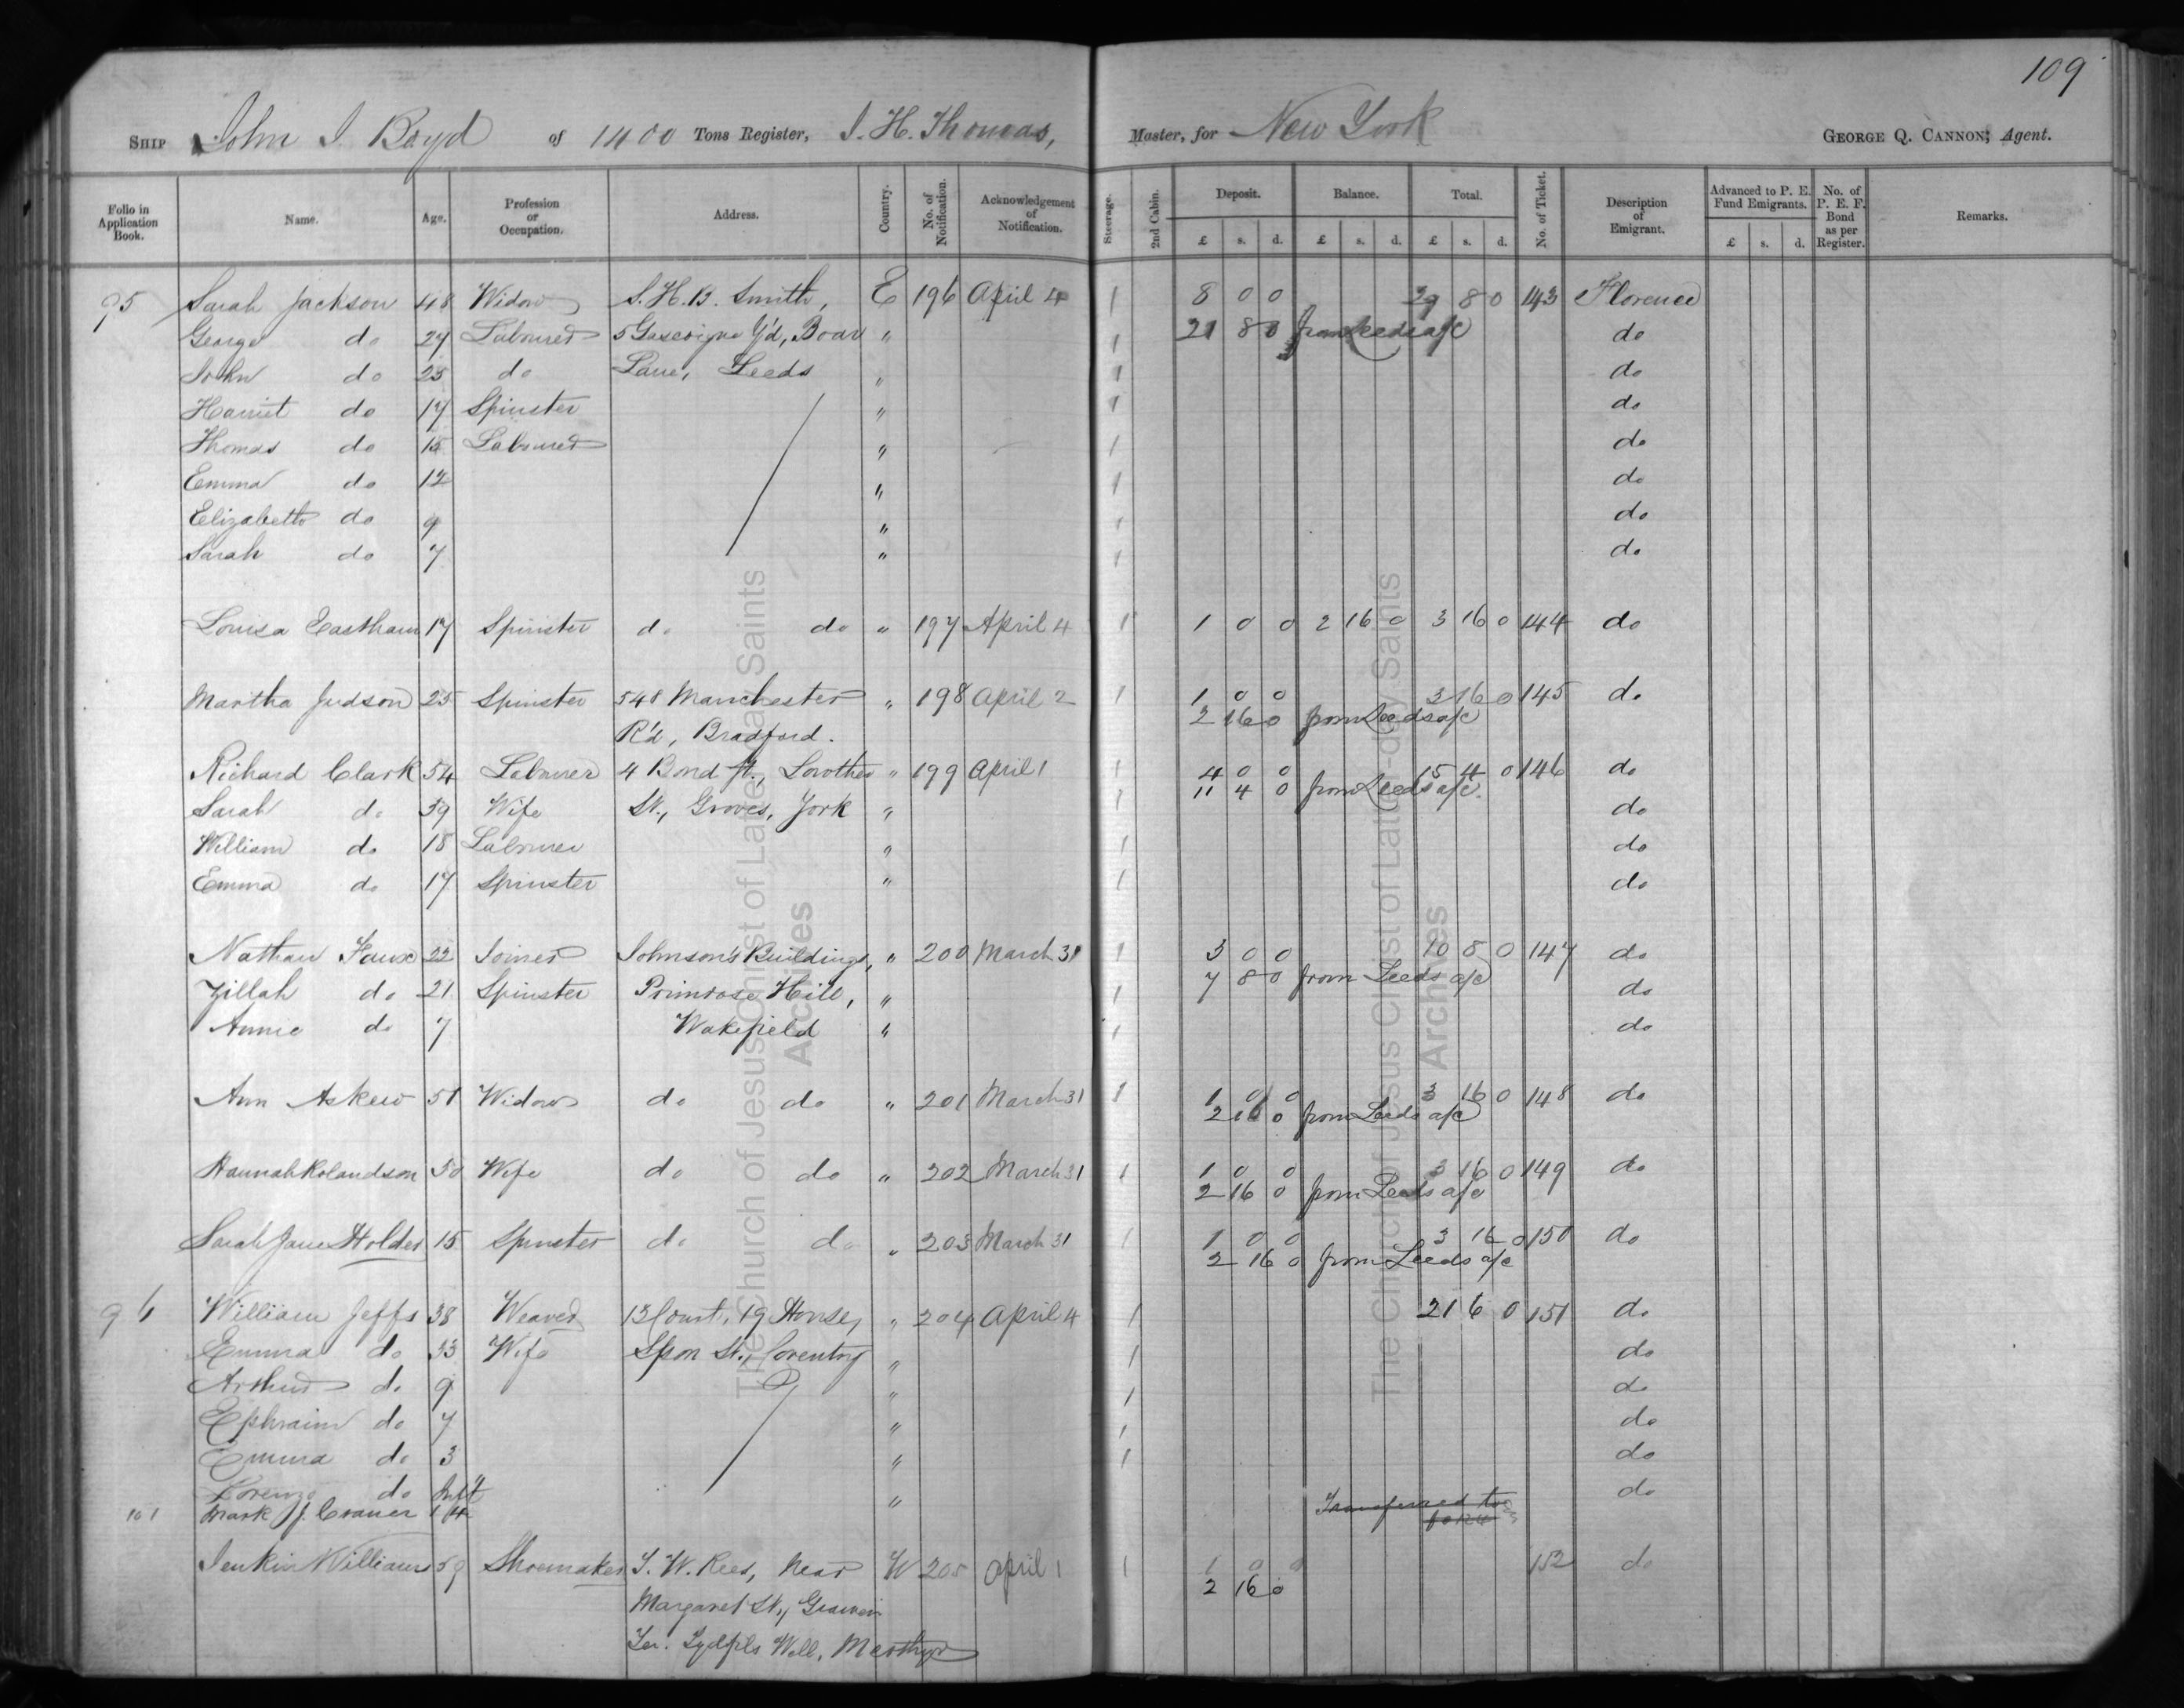 109
SHIP John J. Boyd of 1400 Tons Register, J. H. Thomas, Master, for New York GEORGE Q. CANNON, Agent.
Folio in Application Book. Name. Age. Profession or Occupation. Address. Country. No. of Notification. Acknowledgement of Notification. Steerage. 2nd Cabin. Deposit. Balance. Total. No. of Ticket. Description of Emigrant. Advanced to P. E. Fund Emigrants. No. of P. E. F. Bond as per Register. Remarks.
£ s. d. £ s. d. £ s. d. £ s. d.
95 Sarah Jackson 48 Widow S. H. B. Smith, E 196 April 4 1 8 0 0 29 8 0 143 Florence
George do 27 Labourer 5 Gascoigne Y'd, Boar " 1 21 8 0 from Leeds a/c do
John do 25 do Lane, Leeds " 1 do
Harriet do 17 Spinster " 1 do
Thomas do 15 Labourer " 1 do
Emma do 12 " 1 do
Elizabeth do 9 " 1 do
Sarah do 7 " 1 do
Louisa Eastham 17 Spinster do do " 197 April 4 1 1 0 0 2 16 0 3 16 0 144 do
Martha Judson 25 Spinster 548 Manchester " 198 April 2 1 1 0 0 3 16 0 145 do
R'd, Bradford. 2 16 0 from Leeds a/c
Richard Clark 54 Labourer 4 Bond St., Lowther " 199 April 1 1 4 0 0 15 4 0 146 do
11 4 0 from Leeds a/c.
Sarah do 39 Wife St., Groves, York " 1 do
William do 18 Labourer " 1 do
Emma do 17 Spinster " 1 do
Nathan Faux 22 Joiner Johnson's Buildings, " 200 March 31 1 3 0 0 10 8 0 147 do
7 8 0 from Leeds a/c
Zillah do 21 Spinster Primrose Hill, " 1 do
Annie do 7 Wakefield " 1 do
Ann Askew 51 Widow do do " 201 March 31 1 1 0 0 3 16 0 148 do
2 16 0 from Leeds a/c
Hannah Rolandson 50 Wife do do " 202 March 31 1 1 0 0 3 16 0 149 do
2 16 0 from Leeds a/c
Sarah Jane Holder 15 Spinster do do " 203 March 31 1 1 0 0 3 16 0 150 do
2 16 0 from Leeds a/c
96 William Jeffs 38 Weaver 13 Court, 19 House, " 204 April 4 1 21 6 0 151 do
Emma do 33 Wife Spon St., Coventry " 1 do
Arthur do 9 " 1 do
Ephraim do 7 " 1 do
Emma do 3 " 1 do
Lorenzo do Inft " do
101 Mark J. Craner 14 Transferred to
Jenkin Williams 59 Shoemaker T. W. Rees, near W 205 April 1 1 1 0 0 152 do
2 16 0
Margaret St.,
Ter. Tydfils Well, Merthyr
The Church of Jesus Christ of Latter-day Saints
Archives
The Church of Jesus Christ of Latter-day Saints
Archives